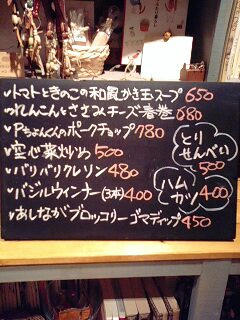 トマトときのこの和風かき玉スープ 650
れんこんとささみチーズ春巻 680
Pちょんくんのポークチョップ 780
空心菜炒め 500
パリパリクレソン 480
バジルウィンナー(3本) 400
あしながブロッコリーゴマディップ 450
とり
せんべい
500
ハム
カツ 400